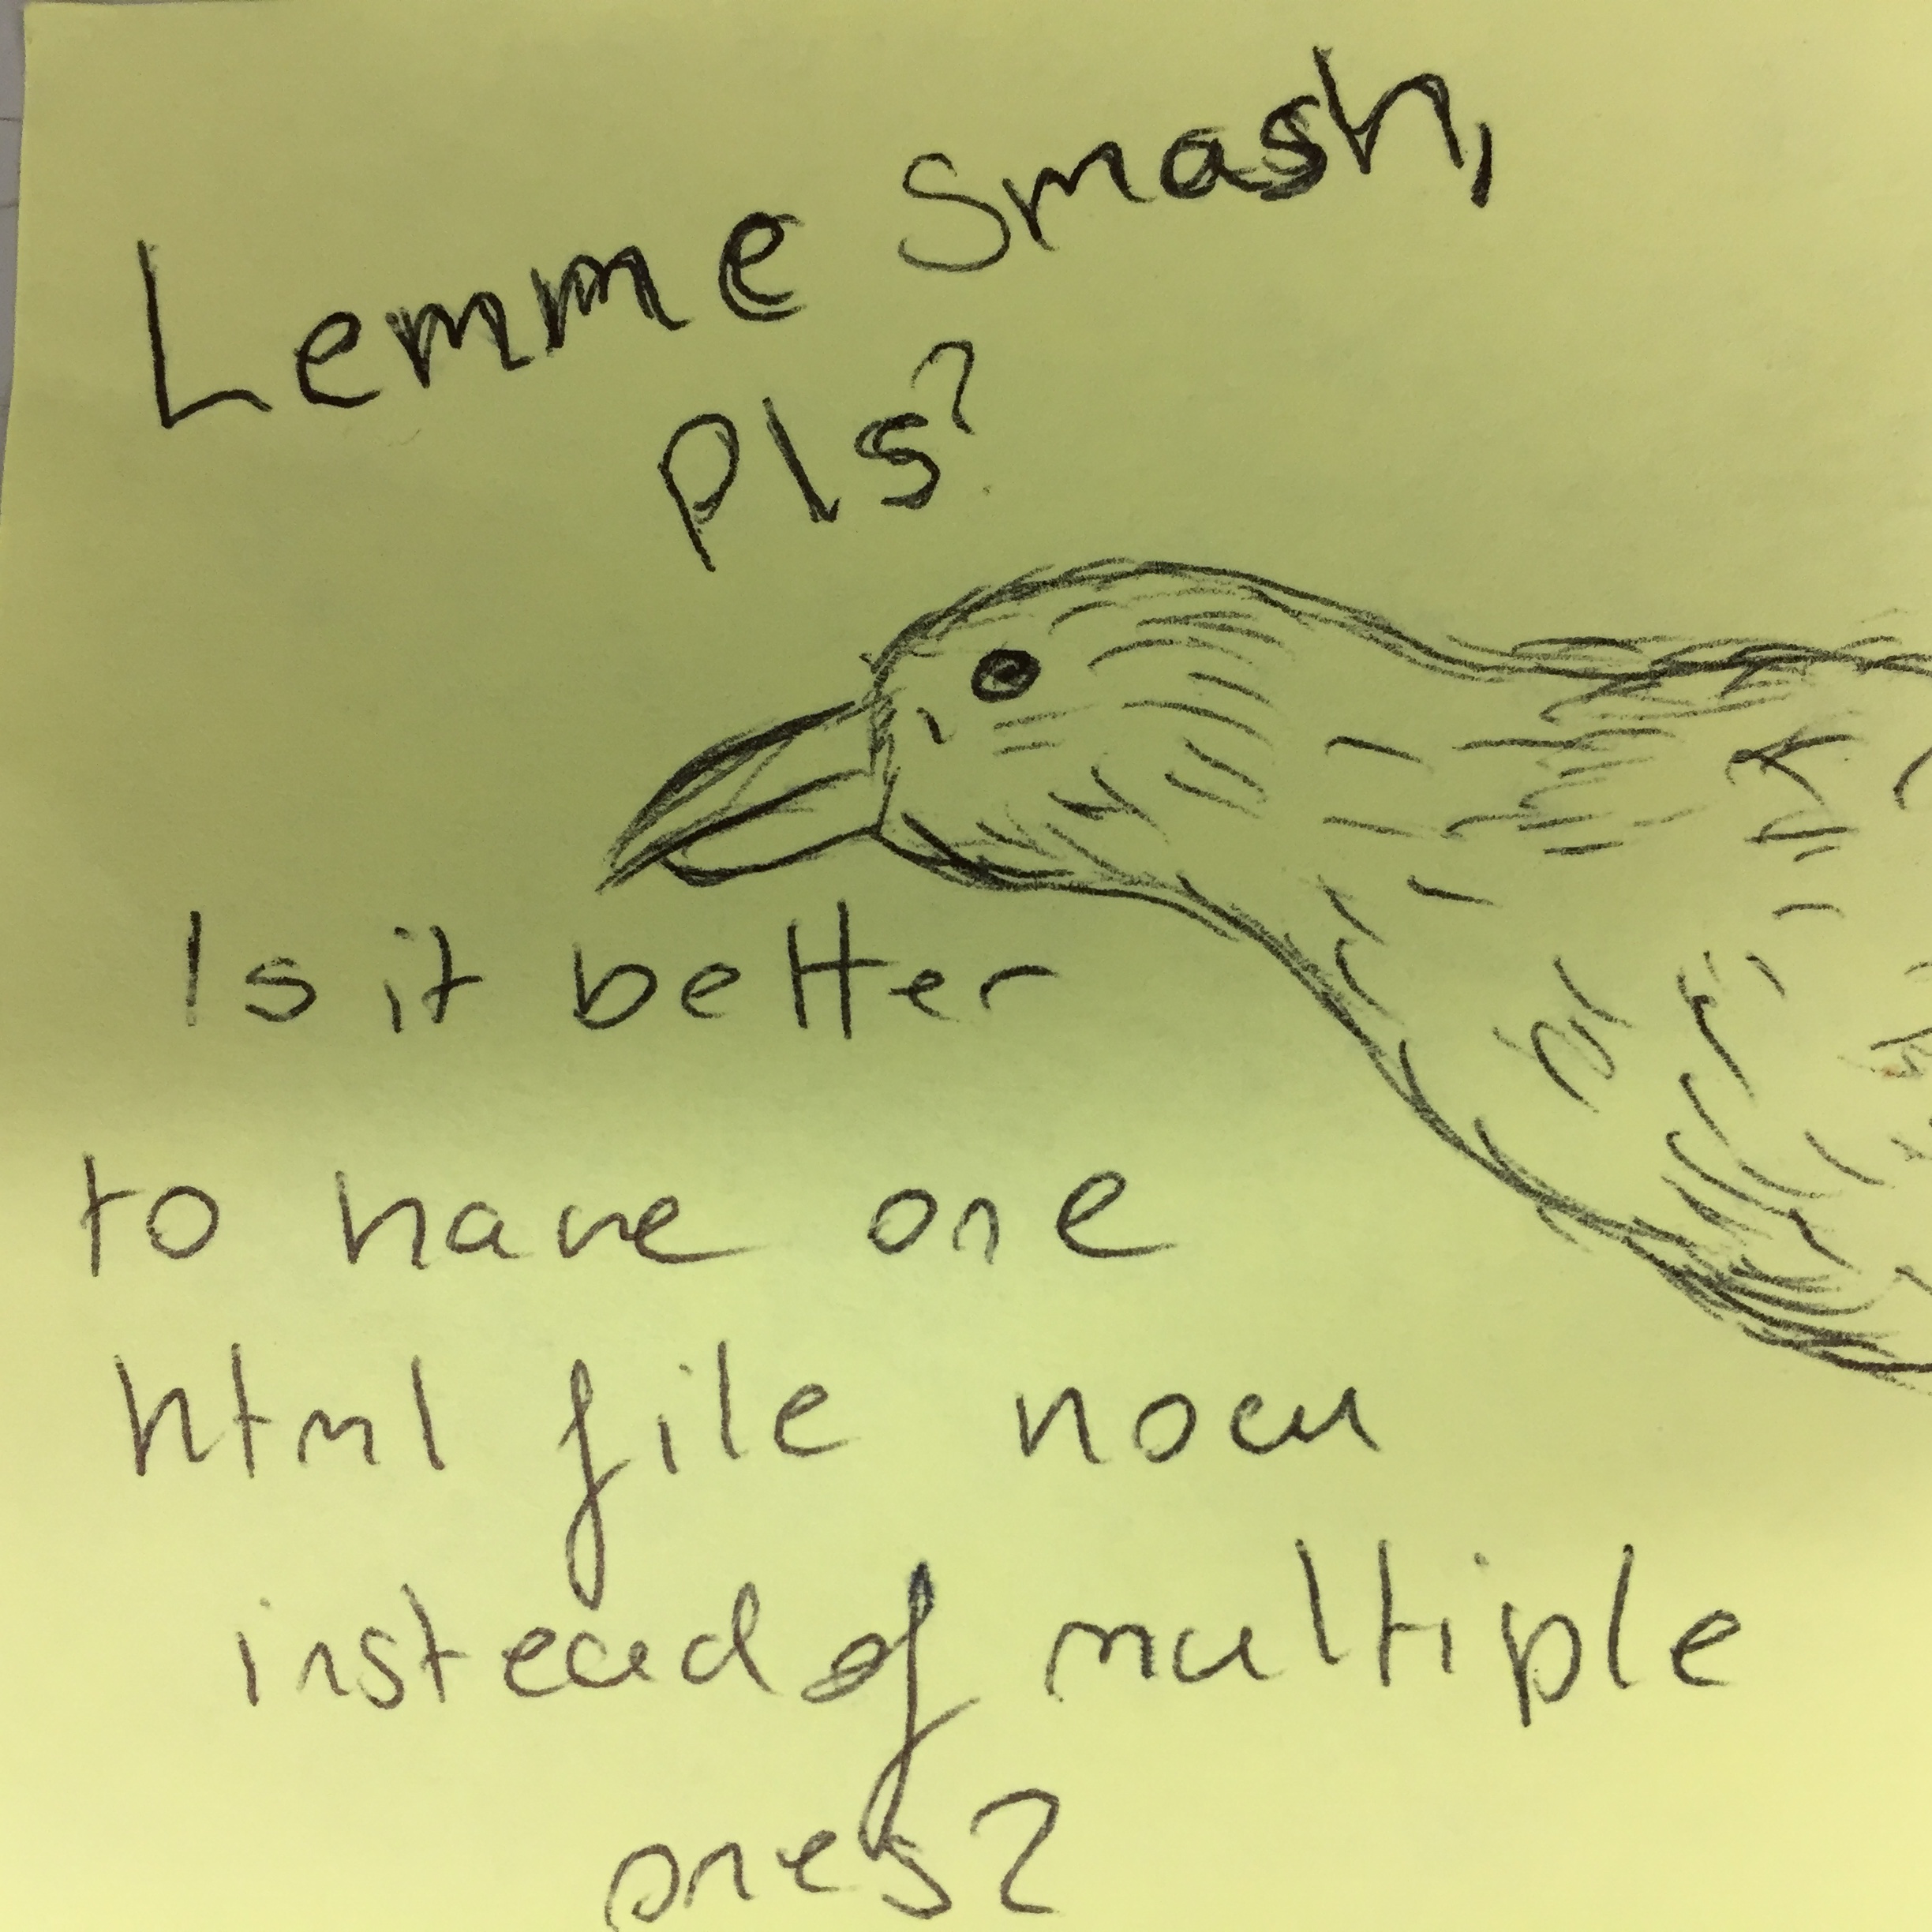 Lemme smash,
pls?
Is it better
to have one
html file now
instead of multiple
ones?